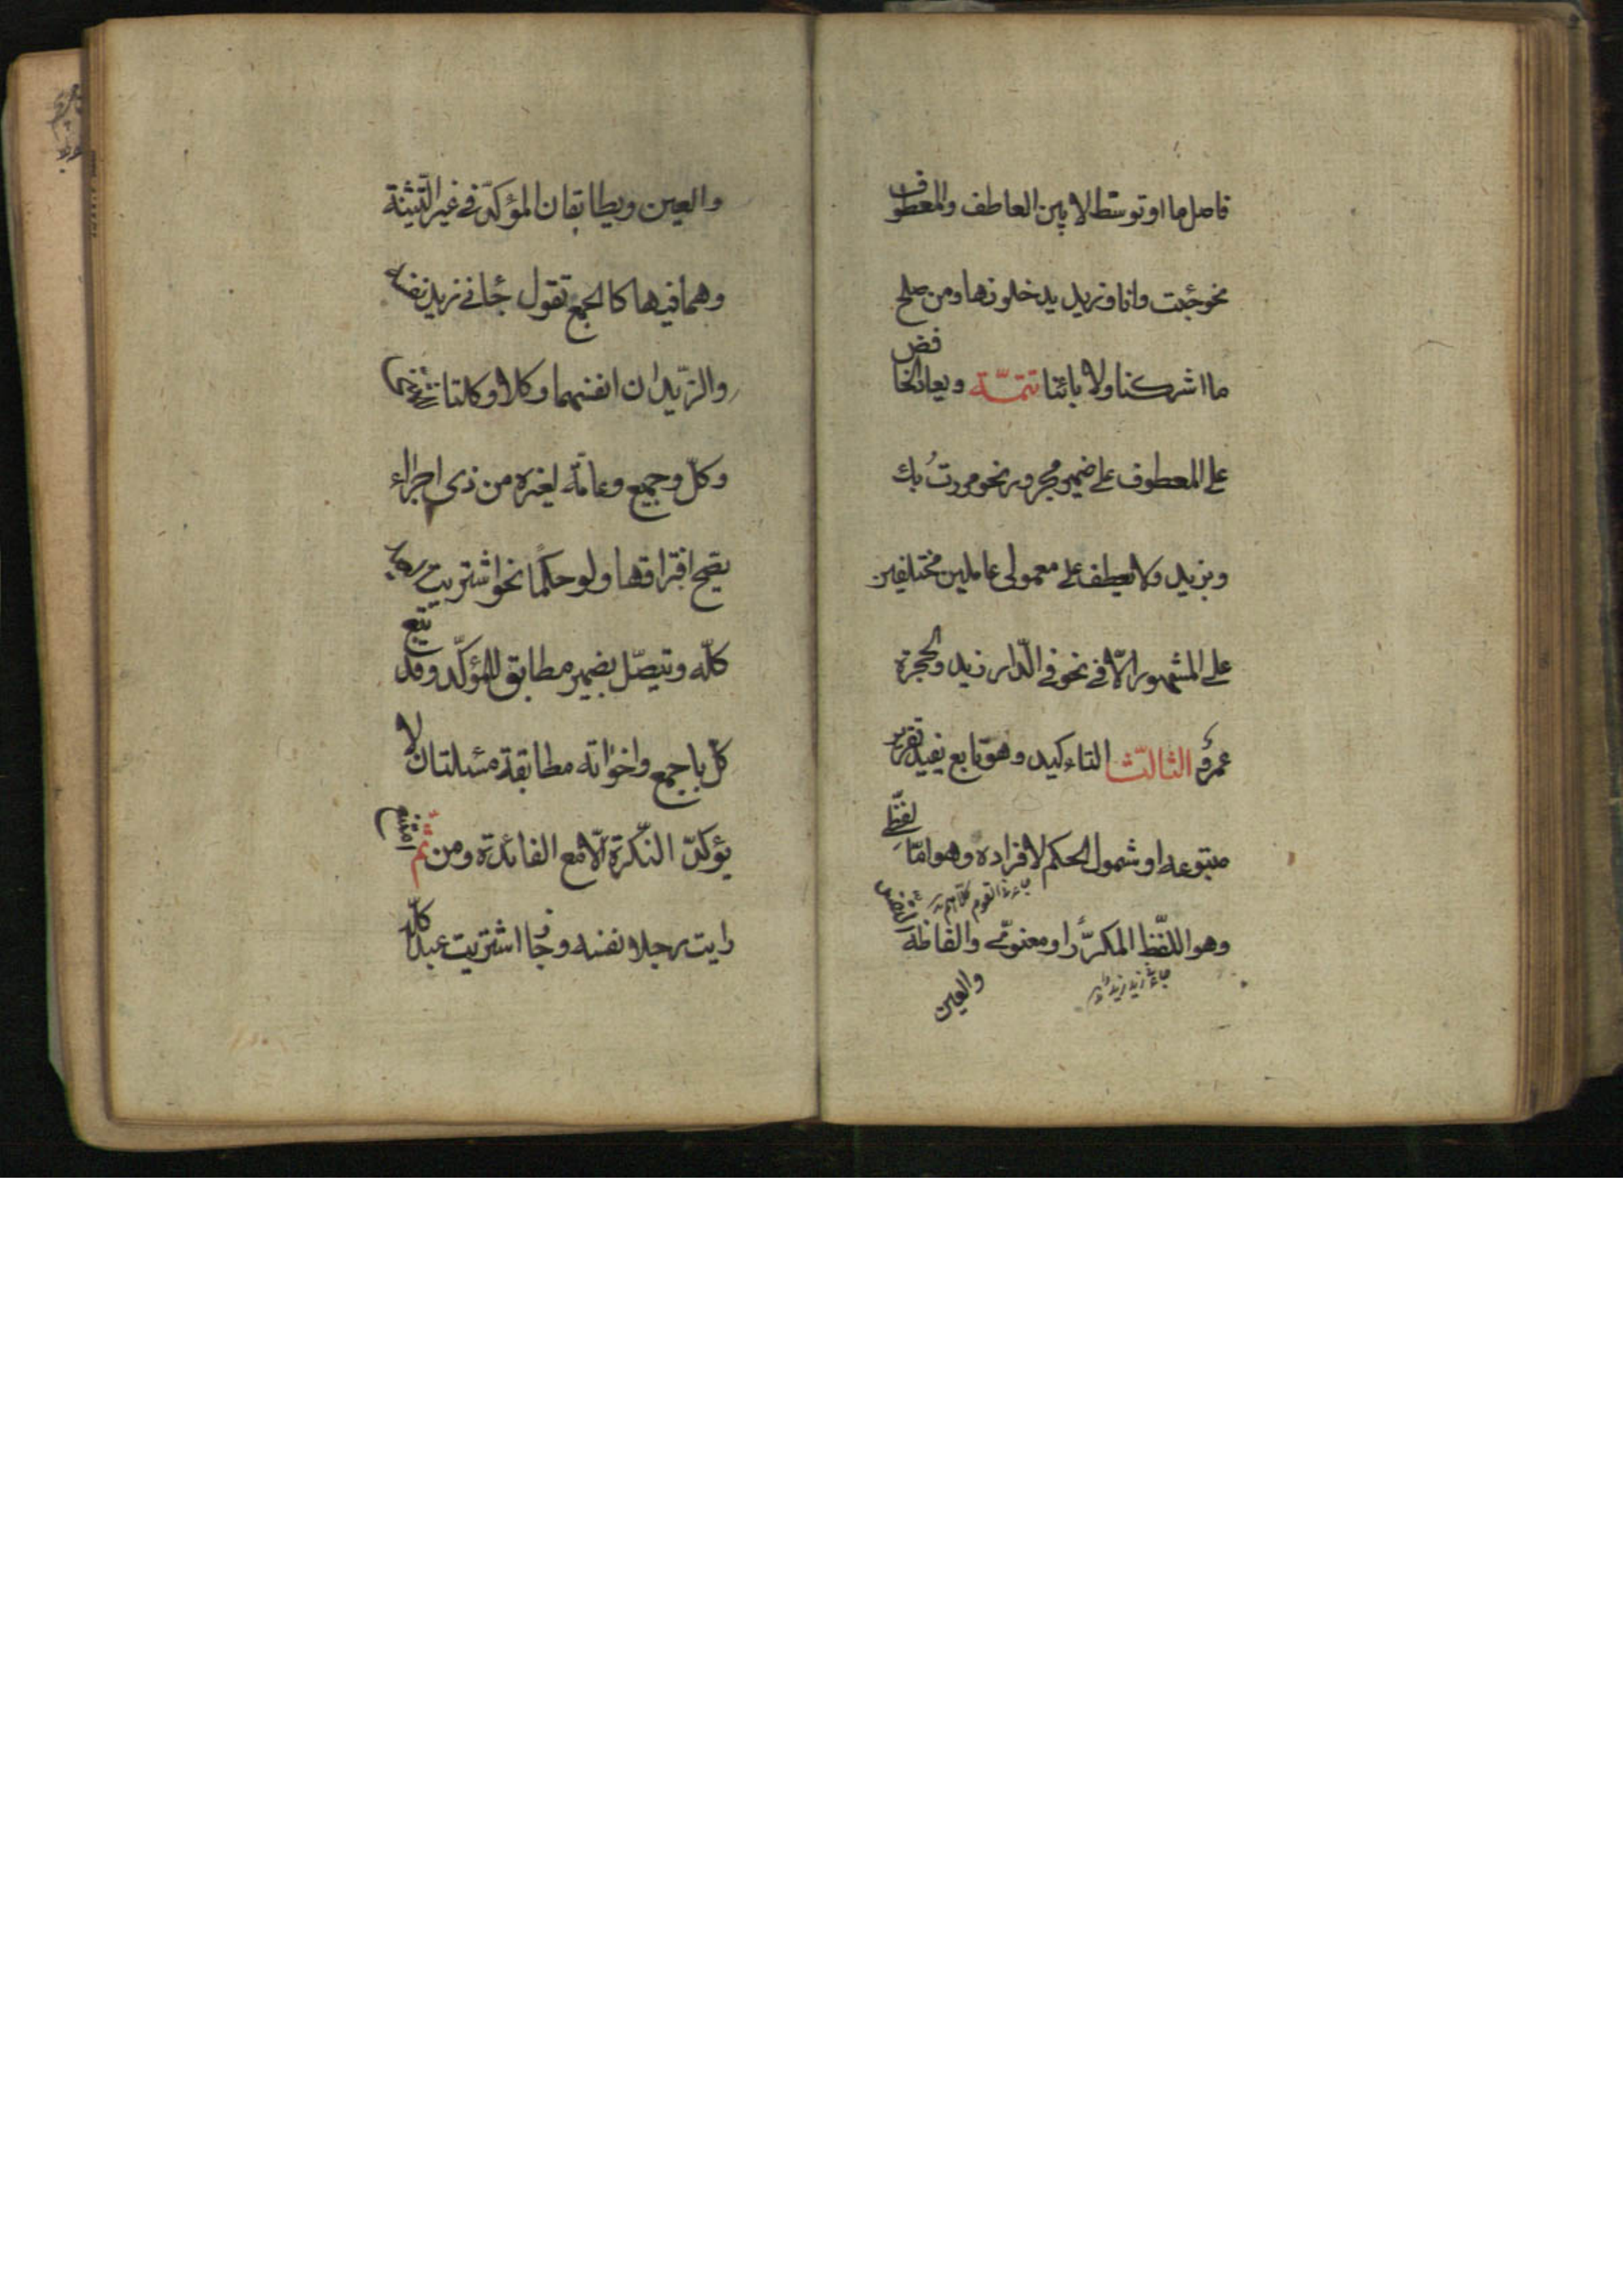 فاصل ما او توسّط لا بين العاطف والمعطوف
نحو جئت وانا وزيد يدخلونها ومن صلح
ما اشركنا ولا بائنا تتمّة ويعاد الخافض
على المعطوف على ضمير مجرور نحو مررتُ بك
وبزيد ولا يعطف على معمولى عاملين مختلفين
على المشهور الّا فى نحو فى الدّار زيد والحجرة
عمرو الثالث التاءكيد وهو تابع يفيد تقرير
متبوعه او شمول الحكم لافراده وهو امّا لفظّى
جاءنى القوم كلهم
وهو اللفّظ المكرّر او معنوىّ والفاظه النفس
جاءنى زيد زيد
والعين
والعين ويطابقان المؤكدّ فى غير التّثنية
وهما فيها كالجمع تقول جائنى زيد نفسه
والزّيدان انفسهما وكلا وكلتا للمثنى
وكلّ وجميع وعامّة لغيره من ذى اجزاء
يصح افتراقها ولو حكمًا نحو اشتريت العبد
كلّه وتيصّل بضمير مطابق للمؤكّد وقد تتبع
كلّ باجمع واخواته مطابقة مسئلتان لا
يؤكدّ النّكرة الّا مع الفائدة ومن ثمّ امتنع
رايت رجلا نفسه وجاز اشتريت عبدا كلّه